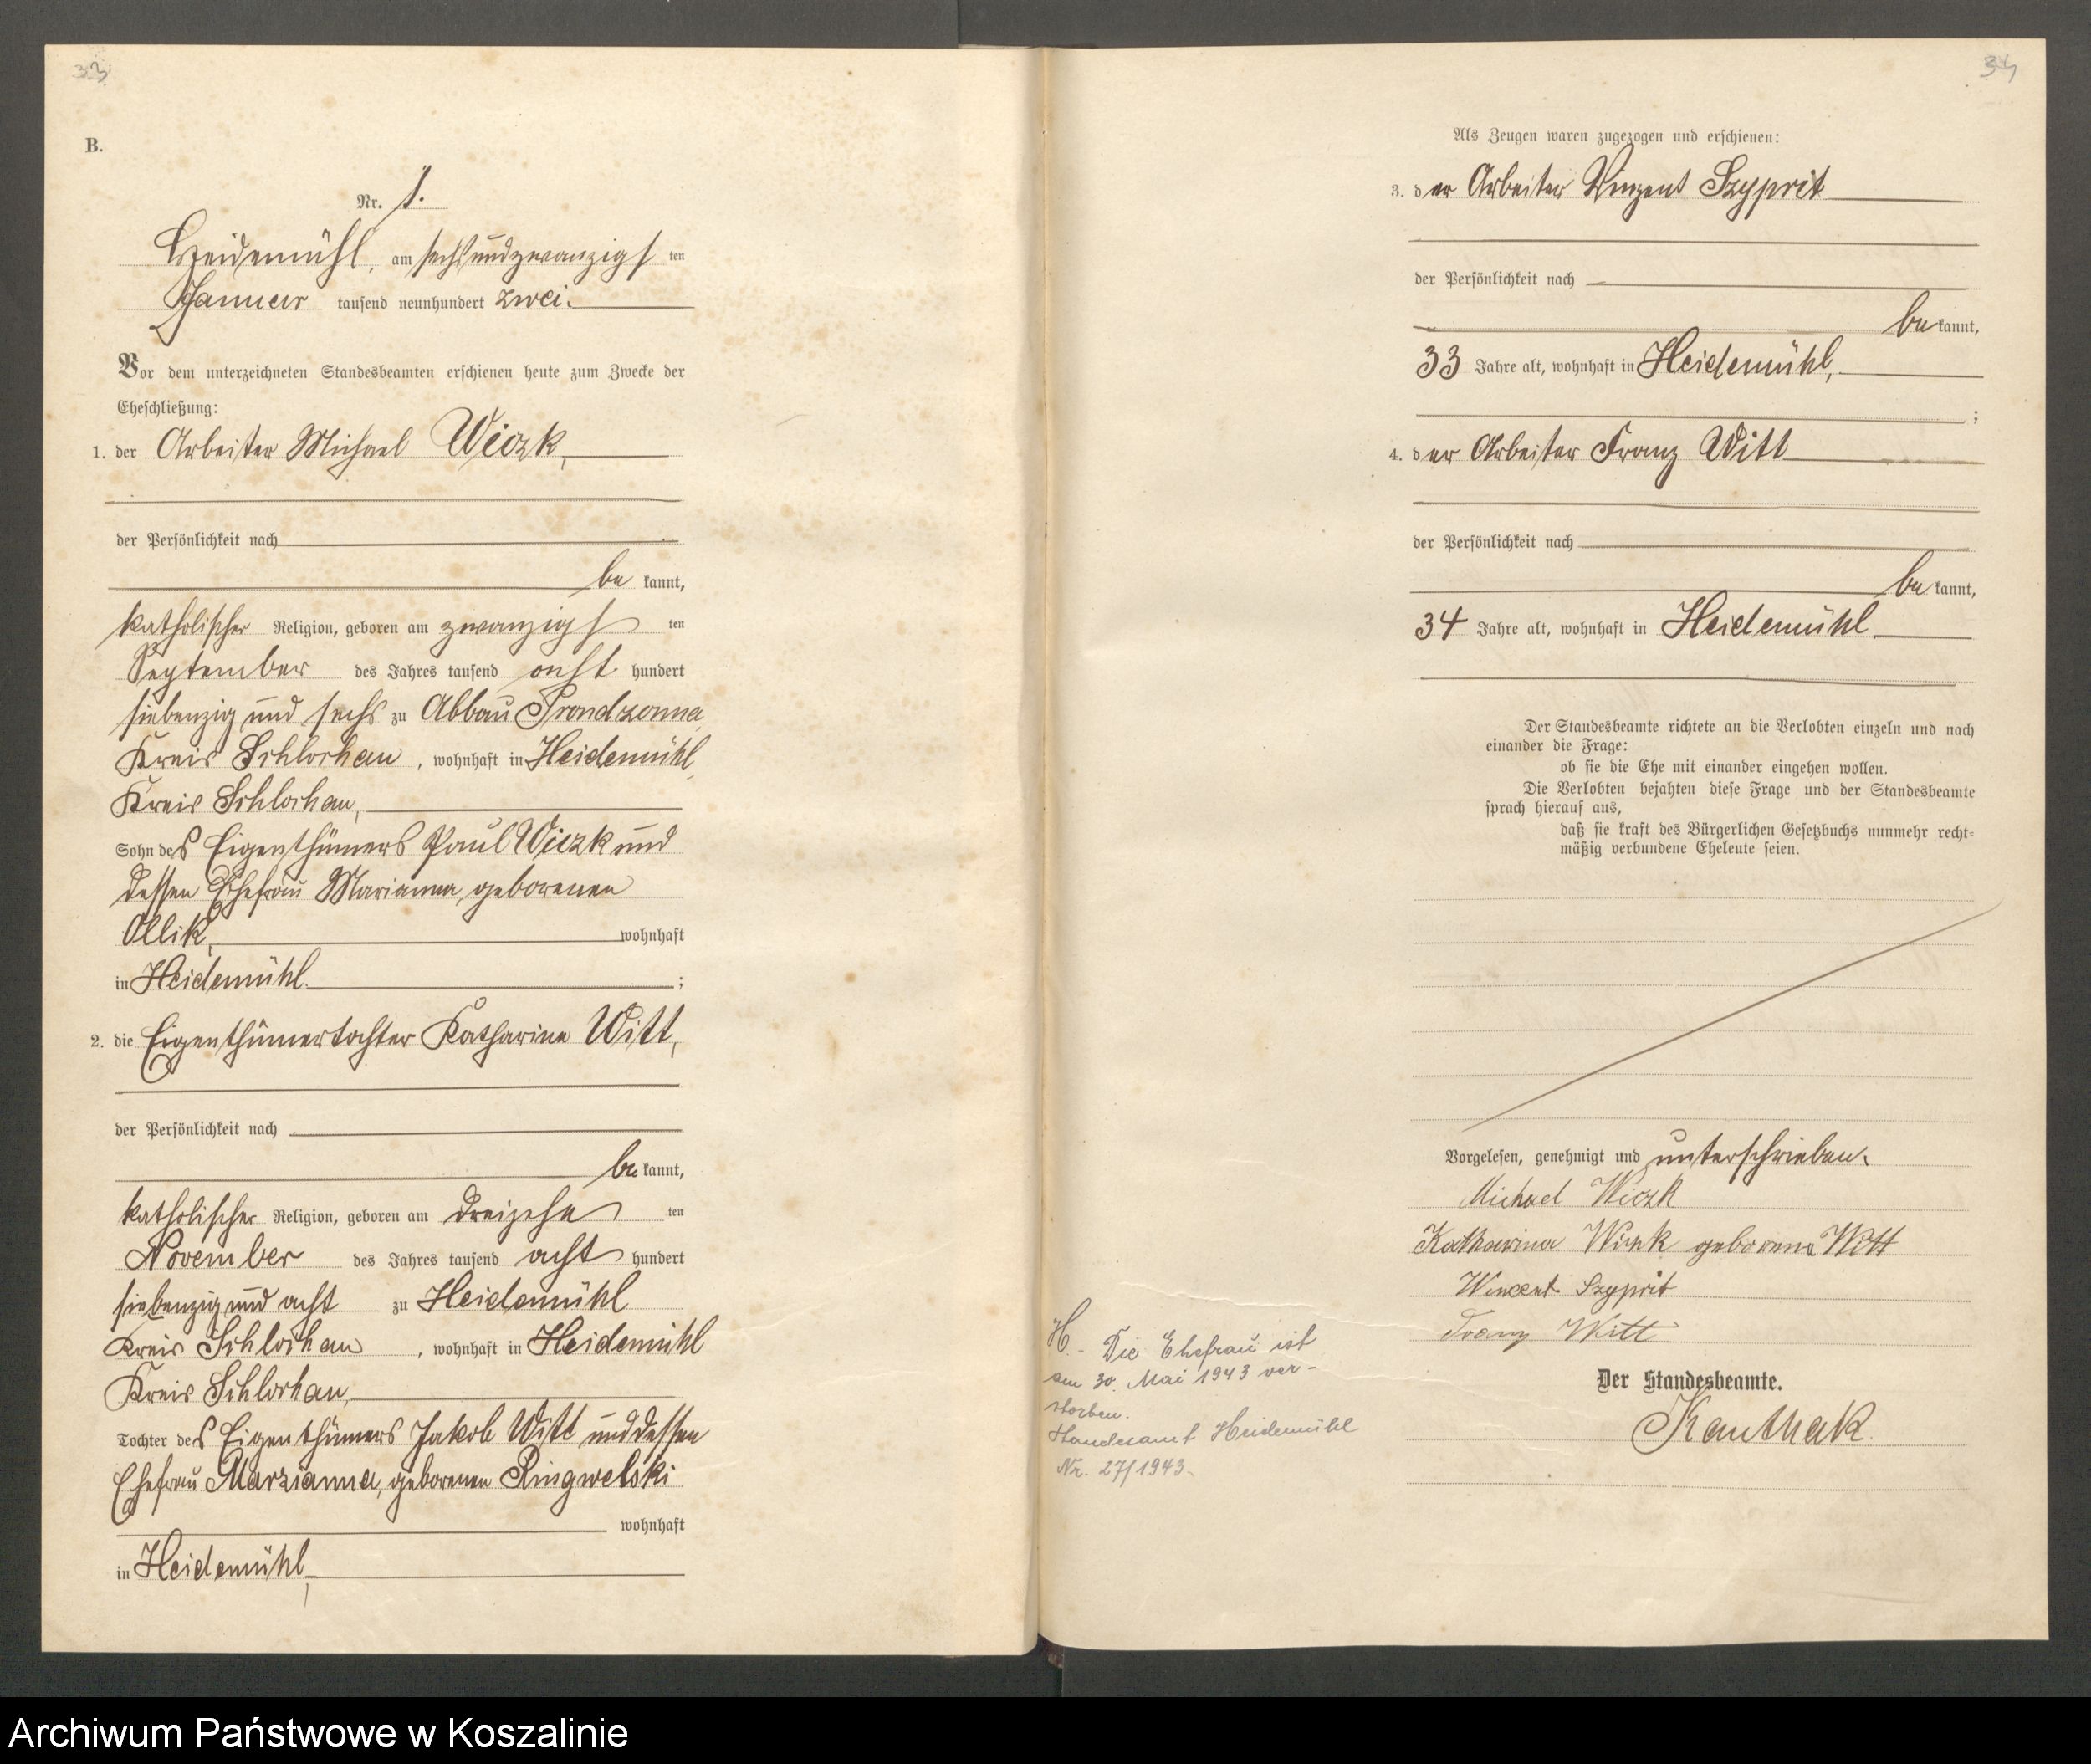 33
B.
Nr. 1.
Heidemühl, am sechsundzwanzigsten
Januar tausend neunhundert zwei.
Vor dem unterzeichneten Standesbeamten erschienen heute zum Zwecke der
Eheschließung:
1. der Arbeiter Michael Wiczk,
der Persönlichkeit nach
bekannt,
katholischer Religion, geboren am zwanzigsten
September des Jahres tausend acht hundert
siebenzig und sechs zu Abbau Prondzonna
Kreis Schlochau, wohnhaft in Heidemühl
Kreis Schlochau,
Sohn des Eigenthümers Paul Wiczk und
dessen Ehefrau Marianna, geborenen
Ollik, wohnhaft
in Heidemühl. ;
2. die Eigenthümertochter Katharina Witt,
der Persönlichkeit nach
bekannt,
katholischer Religion, geboren am dreizehnten
November des Jahres tausend acht hundert
siebenzig und acht zu Heidemühl
Kreis Schlochau, wohnhaft in Heidemühl
Kreis Schlochau,
Tochter des Eigenthümers Jakob Witt und dessen
Ehefrau Marzianna, geborenen Ringwelski
wohnhaft
in Heidemühl,
34
Als Zeugen waren zugezogen und erschienen:
3. der Arbeiter Vinzent Szyprit
der Persönlichkeit nach
bekannt,
33 Jahre alt, wohnhaft in Heidemühl,
;
4. der Arbeiter Franz Witt
der Persönlichkeit nach
bekannt,
34 Jahre alt, wohnhaft in Heidemühl.
Der Standesbeamte richtete an die Verlobten einzeln und nach
einander die Frage:
ob sie die Ehe mit einander eingehen wollen.
Die Verlobten bejahten diese Frage und der Standesbeamte
sprach hierauf aus,
daß sie kraft des Bürgerlichen Gesetzbuchs nunmehr recht-
mäßig verbundene Eheleute seien.
Vorgelesen, genehmigt und unterschrieben.
Michael Wiczk
Katharina Wiczk geborene Witt
Wincent Szyprit
Franz Witt
Der Standesbeamte.
Kanthak
H. - Die Ehefrau ist
am 30. Mai 1943 ver-
storben.
Standesamt Heidemühl
Nr. 27/1943.
Archiwum Państwowe w Koszalinie